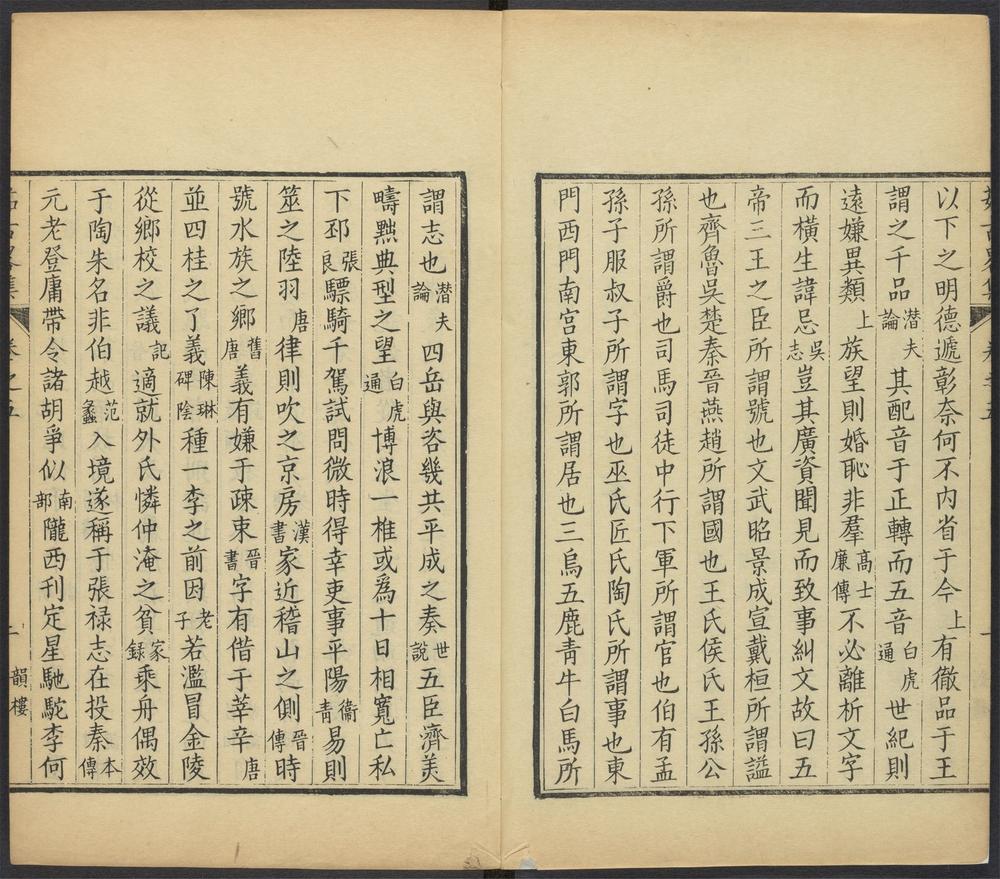 以下之明德遞彰奈何不內省于今上有徹品于王
謂之千品潛夫論其配音于正轉而五音白虎通世紀則
遠嫌異類上族望則婚恥非羣高士廉傳不必離析文字
而橫生諱忌吳志豈其廣資聞見而致事糾文故曰五
帝三王之臣所謂號也文武昭景成宣戴桓所謂謚
也齊魯吳楚秦晉燕趙所謂國也王氏侯氏王孫公
孫所謂爵也司馬司徒中行下軍所謂官也伯有孟
孫子服叔子所謂字也巫氏匠氏陶氏所謂事也東
門西門南宮東郭所謂居也三烏五鹿青牛白馬所
謂志也潛夫論四岳與咨幾共平成之奏世說五臣濟美
疇黙典型之望白虎通博浪一椎或爲十日相寬亡私
下邳張良驃騎千駕試問微時得幸吏事平陽衞青易則
筮之陸羽唐律則吹之京房漢書家近稽山之側晉傳時
號水族之鄉舊唐義有嫌于疎束晉書字有偕于莘辛唐
並四桂之了義陳琳碑陰種一李之前因老子若濫冒金陵
從鄉校之議記適就外氏憐仲淹之貧家録乘舟偶效
于陶朱名非伯越范蠡入境遂稱于張禄志在投秦本傳
元老登庸帶令諸胡爭似南部隴西刊定星馳駝李何
韻樓